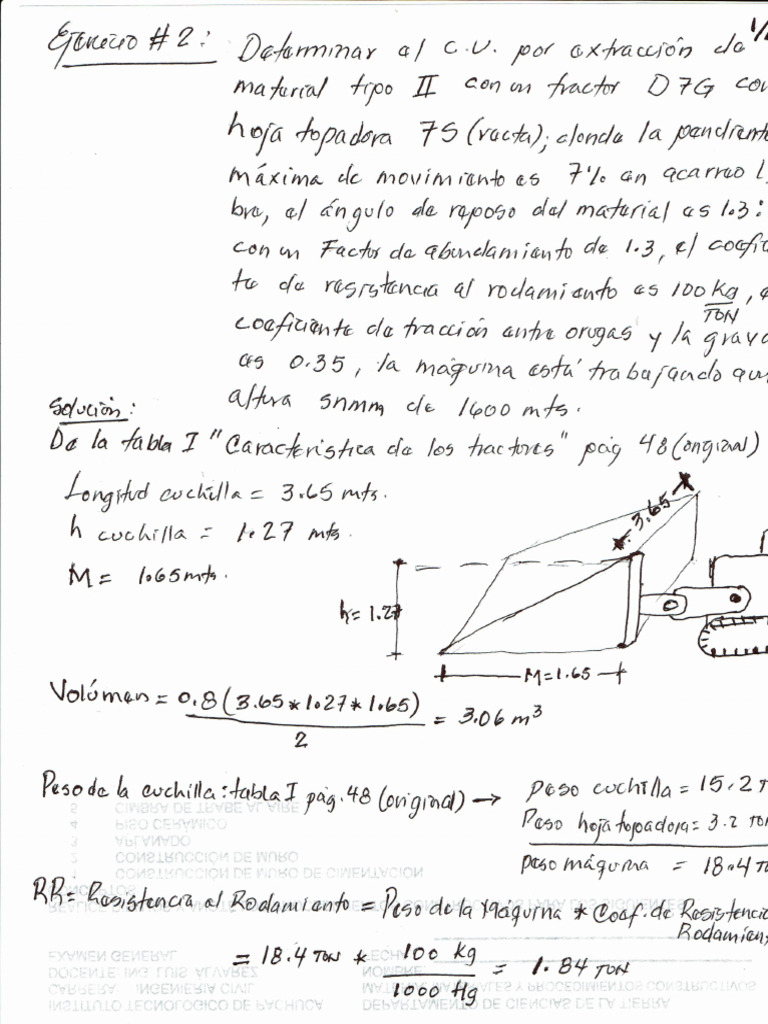 1/
Ejercicio # 2: Determinar el C.U. por extracción de
material tipo II con un tractor D7G con
hoja topadora 7S (recta); donde la pendiente
máxima de movimiento es 7% en acarreo l
bre, el ángulo de reposo del material es 1.3:
con un Factor de abundamiento de 1.3, el coefi
te de resistencia al rodamiento es 100 Kg/TON, e
coeficiente de tracción entre orugas y la grava
es 0.35, la máquina está trabajando a un
altura snmm de 1600 mts.
Solución:
De la tabla I "Caracteristica de los tractores" pág 48 (original)
Longitud cuchilla = 3.65 mts.
h cuchilla = 1.27 mts.
M = 1.65 mts.
3.65
h = 1.27
M = 1.65
Volúmen = 0.8 (3.65 * 1.27 * 1.65) / 2 = 3.06 m³
Peso de la cuchilla: tabla I pág. 48 (original) → peso cuchilla = 15.2 T
Peso hoja topadora = 3.2 TON
peso máquina = 18.4 TO
RR = Resistencia al Rodamiento = Peso de la Máquina * Coef. de Resistencia
Rodamien
= 18.4 TON * 100 kg / 1000 Hg = 1.84 TON
5 CIMBRA DE TRABE AL AIRE
4 PISO CERAMICO
3 APLANADO
2 CONSTRUCCIÓN DE MURO
1 CONSTRUCCIÓN DE MURO DE CIMENTACIÓN
EXAMEN GENERAL
DOCENTE: ING. LUIS ALVAREZ NOMBRE:
CARRERA: INGENIERIA CIVIL
INSTITUTO TECNOLOGICO DE PACHUCA DEPARTAMENTO DE CIENCIAS DE LA TIERRA